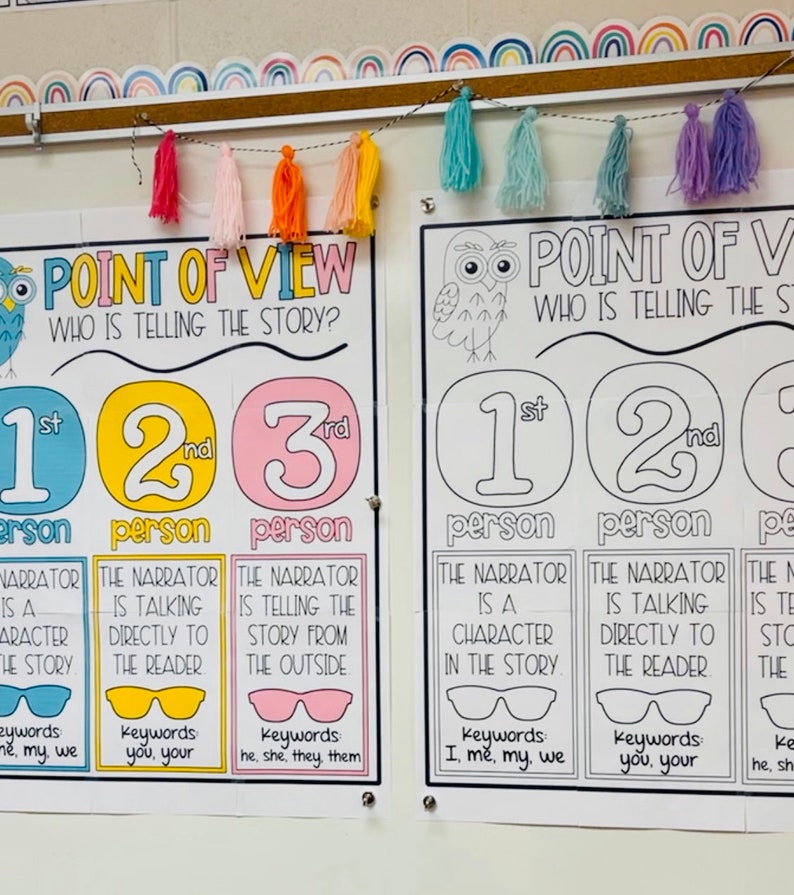 POINT OF VIEW
WHO IS TELLING THE STORY?
1st
erson
NARRATOR
IS A
ARACTER
HE STORY.
eywords:
me, my, we
2nd
person
THE NARRATOR
IS TALKING
DIRECTLY TO
THE READER.
Keywords:
you, your
3rd
person
THE NARRATOR
IS TELLING THE
STORY FROM
THE OUTSIDE.
Keywords:
he, she, they, them
POINT OF V
WHO IS TELLING THE ST
1st
person
THE NARRATOR
IS A
CHARACTER
IN THE STORY.
Keywords:
I, me, my, we
2nd
person
THE NARRATOR
IS TALKING
DIRECTLY TO
THE READER.
Keywords:
you, your
3
pe
THE N
IS TE
STO
THE
Ke
he, sh